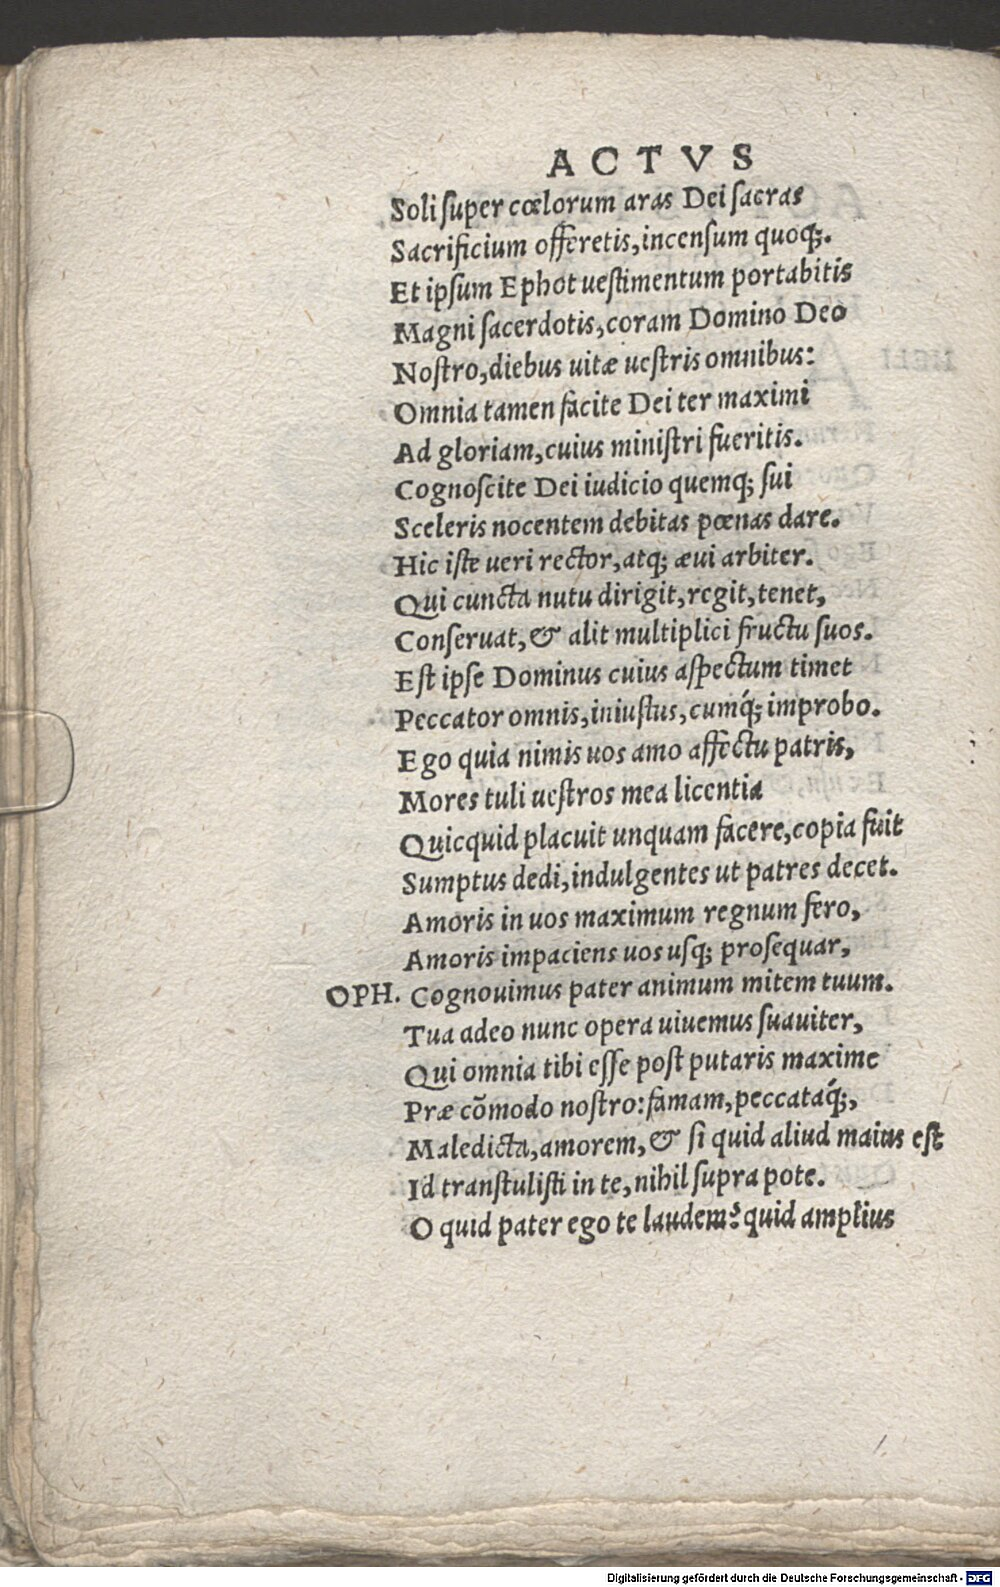 ACTVS
Soli super cœlorum aras Dei sacras
Sacrificium offeretis, incensum quoq;.
Et ipsum Ephot uestimentum portabitis
Magni sacerdotis, coram Domino Deo
Nostro, diebus uitæ uestris omnibus:
Omnia tamen facite Dei ter maximi
Ad gloriam, cuius ministri fueritis.
Cognoscite Dei iudicio quemq; sui
Sceleris nocentem debitas pœnas dare.
Hic iste ueri rector, atq; æui arbiter.
Qui cuncta nutu dirigit, regit, tenet,
Conseruat, & alit multiplici fructu suos.
Est ipse Dominus cuius aspectum timet
Peccator omnis, iniustus, cumq́; improbo.
Ego quia nimis uos amo affectu patris,
Mores tuli uestros mea licentia
Quicquid placuit unquam facere, copia fuit
Sumptus dedi, indulgentes ut patres decet.
Amoris in uos maximum regnum fero,
Amoris impaciens uos usq; prosequar,
OPH. Cognouimus pater animum mitem tuum.
Tua adeo nunc opera uiuemus suauiter,
Qui omnia tibi esse post putaris maxime
Præ cõmodo nostro: famam, peccataq́;,
Maledicta, amorem, & si quid aliud maius est
Id transtulisti in te, nihil supra pote.
O quid pater ego te laudem? quid amplius
Digitalisierung gefördert durch die Deutsche Forschungsgemeinschaft - DFG